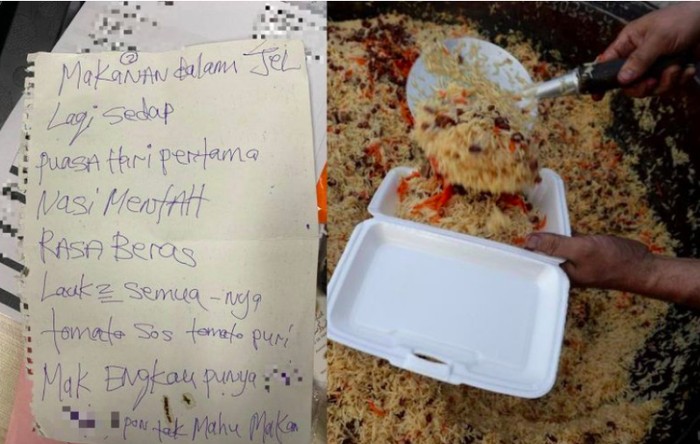 Makanan dalam Jel
Lagi sedap
puasa Hari pertama
Nasi Mentah
Rasa Beras
Lauk2 semua-nya
tomato sos tomato puri
Mak Engkau punya
pon tak Mahu Makan